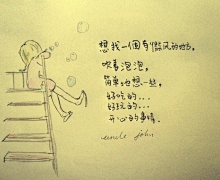 想找一個有微風的地方,
吹著泡泡,
簡單地想一些,
好吃的...
好玩的...
開心的事情.
uncle john